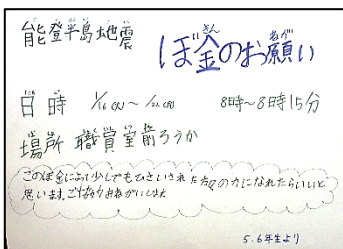 能登半島地震
ぼ金のお願い
日時 1/16(火)〜1/22(月) 8時〜8時15分
場所 職員室前ろうか
このぼ金によって少しでもひさいされた方々の力になれたらいいと
思います。ご協力おねがいします
5.6年生より